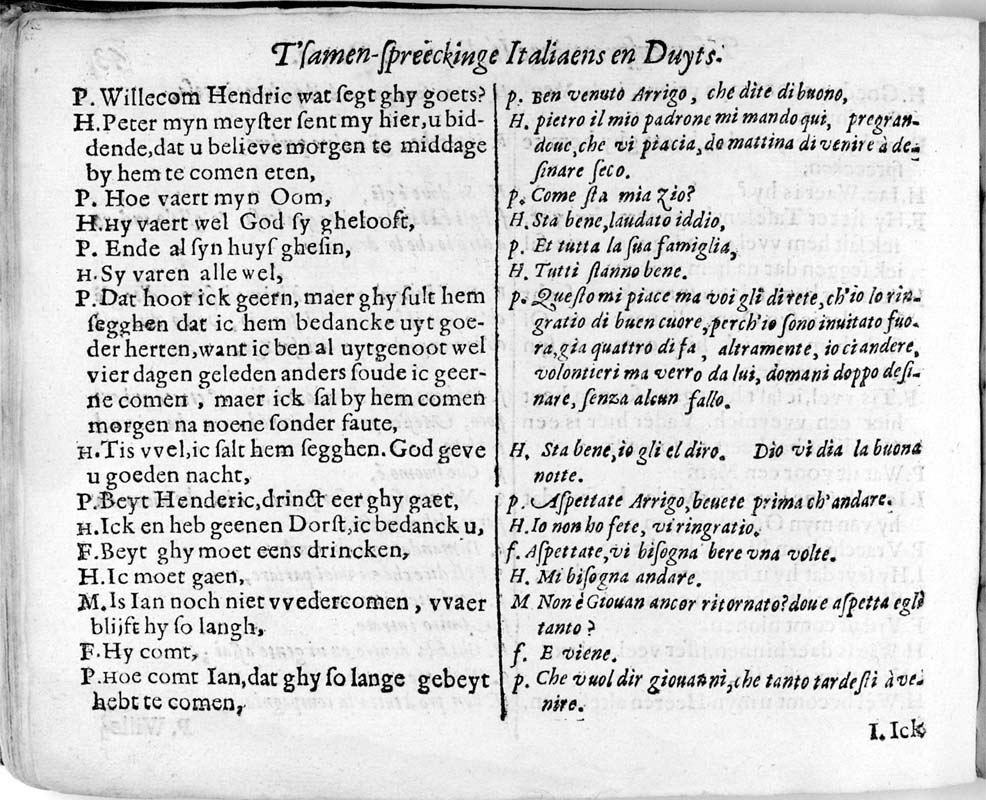 T'ſamen-ſpreeckinge Italiaens en Duyts.
P. Willecom Hendric wat ſegt ghy goets?
H. Peter myn meyſter ſent my hier, u bid-
dende, dat u believe morgen te middage
by hem te comen eten,
P. Hoe vaert myn Oom,
H. Hy vaert wel God ſy ghelooft,
P. Ende al ſyn huyſ gheſin,
H. Sy varen alle wel,
P. Dat hoor ick geern, maer ghy ſult hem
ſegghen dat ic hem bedancke uyt goe-
der herten, want ic ben al uytgenoot wel
vier dagen geleden anders ſoude ic geer-
ne comen, maer ick ſal by hem comen
morgen na noene ſonder faute,
H. Tis vvel, ic ſalt hem ſegghen. God geve
u goeden nacht,
P. Beyt Henderic, drinct eer ghy gaet,
H. Ick en heb geenen Dorſt, ic bedanck u,
F. Beyt ghy moet eens drincken,
H. Ic moet gaen,
M. Is Ian noch niet vvedercomen, vvaer
blijft hy ſo langh,
F. Hy comt,
P. Hoe comt Ian, dat ghy ſo lange gebeyt
hebt te comen,
p. Ben venuto Arrigo, che dite di buono,
H. pietro il mio padrone mi mando qui, pregran-
doue, che vi piacia, do mattina di venire à de-
ſinare ſeco.
p. Come ſta mia Zio?
H. Sta bene, laudato iddio,
p. Et tutta la ſua famiglia,
H. Tutti ſtanno bene.
p. Queſto mi piace ma voi gli direte, ch'io lo rin-
gratio di buen cuore, perch'io ſono inuitato fuo-
ra, gia quattro di fa, altramente, io ci andere,
volontieri ma verro da lui, domani doppo deſi-
nare, ſenza alcun fallo.
H. Sta bene, io gli el diro. Dio vi dia la buona
notte.
p. Aſpettate Arrigo, beuete prima ch'andare.
H. Io non ho ſete, vi ringratio.
f. Aſpettate, vi biſogna bere vna volte.
H. Mi biſogna andare.
M Non è Giouan ancor ritornato? doue aſpetta egli
tanto?
f. E viene.
p. Che vuol dir giouanni, che tanto tardeſti à ve-
nire.
I. Ick